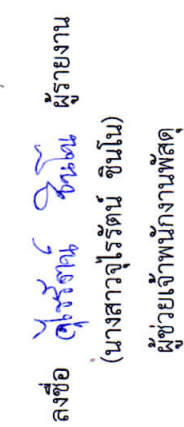 ลงชื่อ จุไรรัตน์ ชินโน ผู้รายงาน
(นางสาวจุไรรัตน์ ชินโน)
ผู้ช่วยเจ้าพนักงานพัสดุ